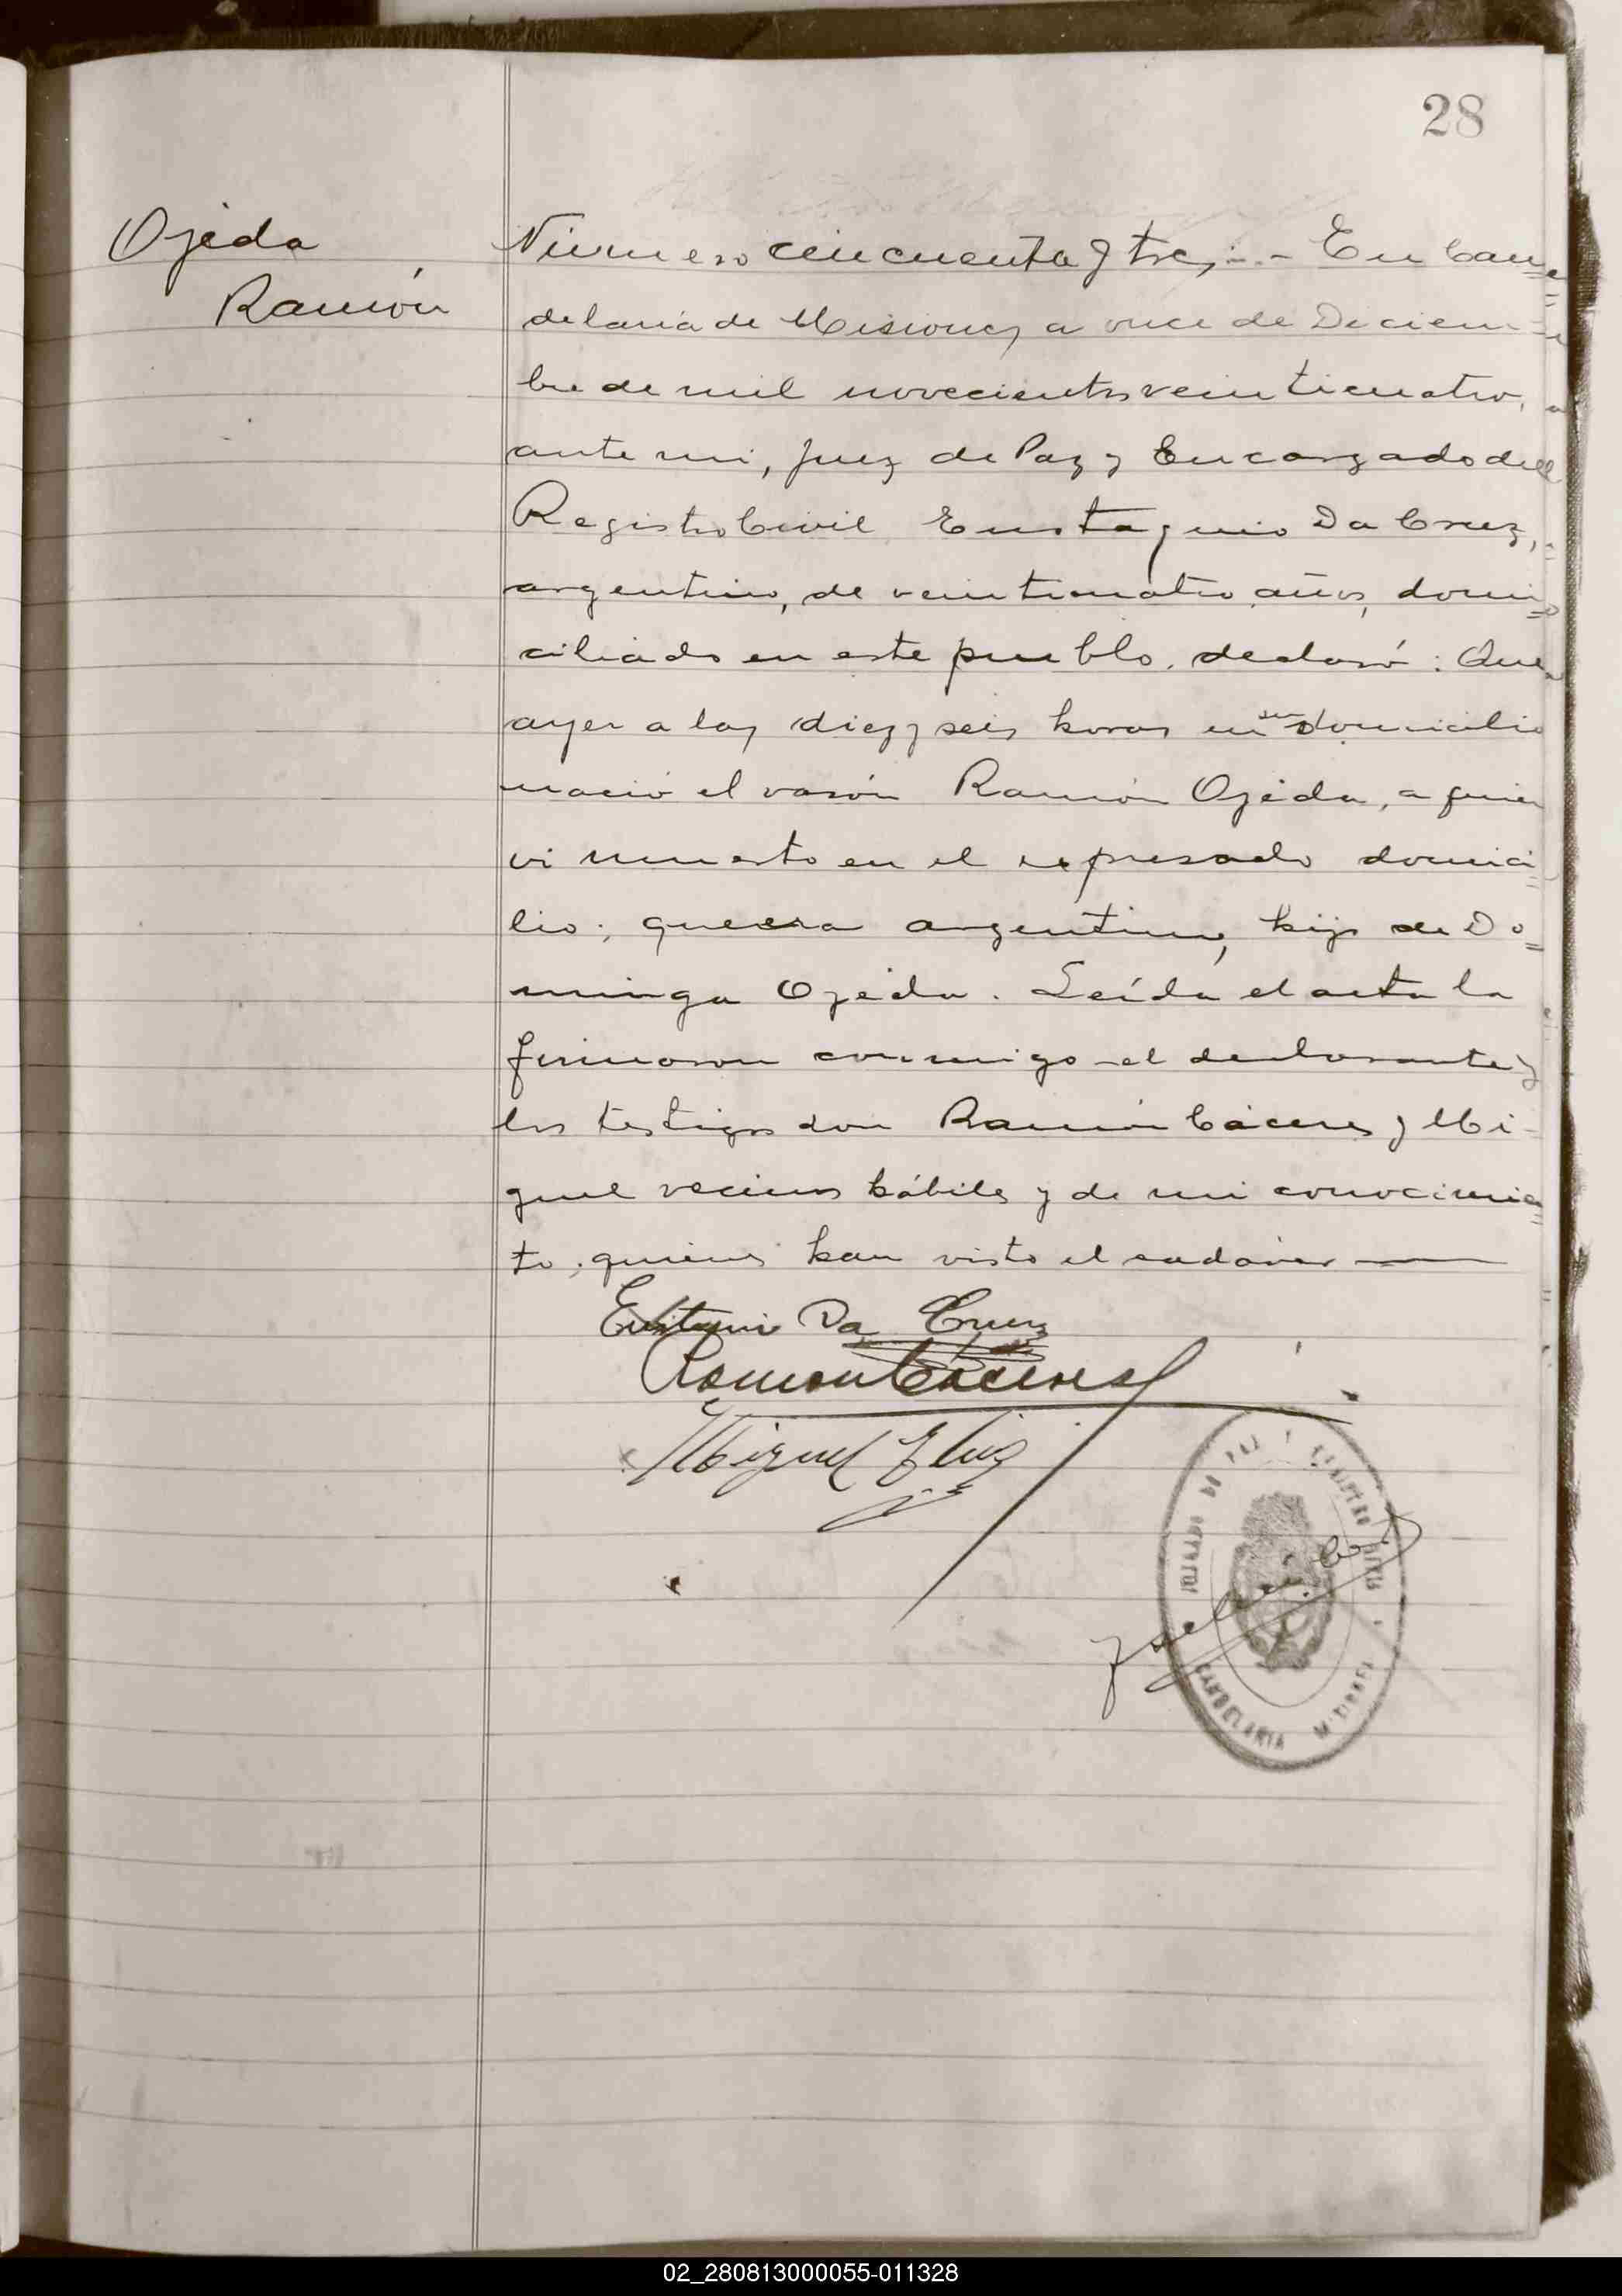 28
Ojeda
Ramón
Número cincuenta y tres.- En Can=
delaria de Misiones a once de Diciem-
bre de mil novecientos veinticuatro,
ante mi, Juez de Paz y Encargado del
Registro Civil Eustaquio Da Cruz,
argentino, de veinticuatro años, domi=
ciliado en este pueblo, declaró: Que
ayer a las diez y seis horas en su domicilio
nació el varón Ramón Ojeda, a quien
vi muerto en el expresado domici=
lio; que era argentino, hijo de Do=
minga Ojeda. Leída el acta la
firmaron conmigo el declarante y
los testigos don Ramón Cáceres y Mi-
guel vecinos hábiles y de mi conocimien=
to, quienes han visto el cadáver
Da Cruz
Ramon Caceres
Miguel
JUZGADO DE PAZ Y REGISTRO CIVIL
CANDELARIA MISIONES
02_280813000055-011328